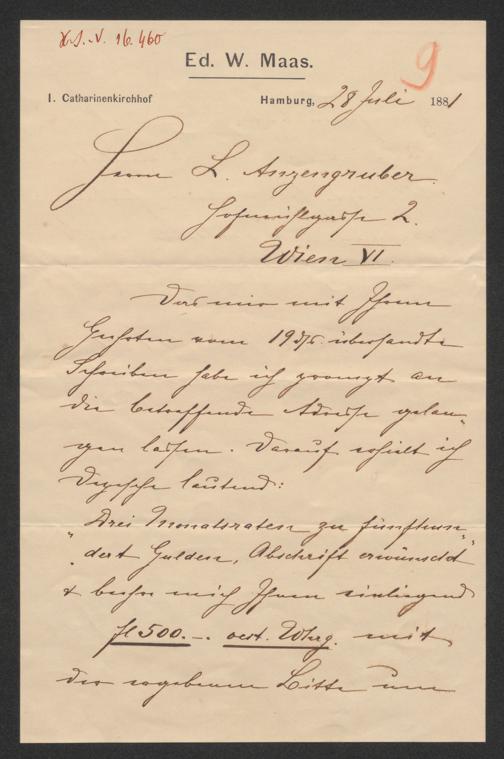 H.I.N. 16.460
9
Ed. W. Maas.
I. Catharinenkirchhof
Hamburg, 28 Juli 1881
Herrn L. Anzengruber.
Hofmühlgasse 2.
Wien VI.
Das mir mit Ihrem
Geehrten vom 19 ds. übersandte
Schreiben habe ich prompt an
die betreffende Adresse gelan-
gen lassen. Darauf erhielt ich
Depesche lautend:
„Drei Monatsraten zu fünfhun-
„dert Gulden, Abschrift erwünscht"
& beehre mich Ihnen einliegend
fl 500.-. oest. Whrg. mit
der ergebenen Bitte um